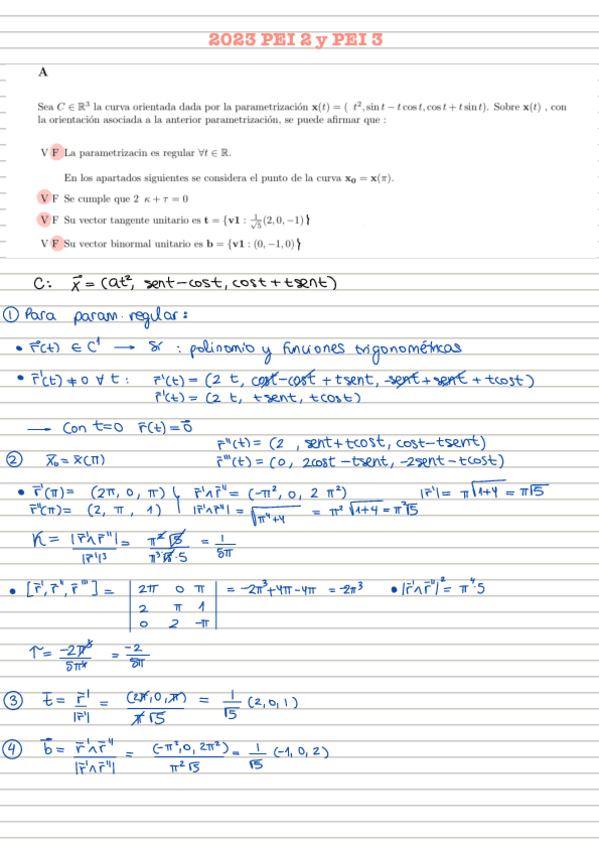 2023 PEI 2 y PEI 3
A
Sea C ∈ ℝ³ la curva orientada dada por la parametrización x(t) = ( t², sin t − t cos t, cos t + t sin t). Sobre x(t) , con
la orientación asociada a la anterior parametrización, se puede afirmar que :
V F La parametrizacin es regular ∀t ∈ ℝ.
En los apartados siguientes se considera el punto de la curva x₀ = x(π).
V F Se cumple que 2 κ + τ = 0
V F Su vector tangente unitario es t = {v1 : 1/√5 (2, 0, −1) }
V F Su vector binormal unitario es b = {v1 : (0, −1, 0) }
C: x⃗ = (at², sent-cost, cost + tsent)
① Para param. regular:
• r⃗(t) ∈ C¹ → Sí : polinomio y funciones trigonométricas
• r⃗'(t) ≠ 0 ∀ t : r⃗'(t) = (2 t, cost-cost + tsent, -sent + sent + tcost)
r⃗'(t) = (2 t, tsent, tcost)
→ Con t=0 r⃗(t) = 0⃗
r⃗''(t) = (2 , sent+tcost, cost-tsent)
② x⃗₀ = x⃗(π) r⃗'''(t) = (0, 2cost -tsent, -2sent -tcost)
• r⃗'(π) = (2π, 0, π) r⃗'∧r⃗'' = (-π², 0, 2π²) |r⃗'| = π√1+4 = π√5
r⃗''(π) = (2, π, 1) |r⃗'∧r⃗''| = √π⁴+4 = π²√1+4 = π²√5
K = |r⃗'∧r⃗''| / |r⃗'|³ = π²√5 / π³√5·5 = 1/5π
• [r⃗', r⃗'', r⃗'''] = | 2π 0 π | = -2π³+4π-4π = -2π³ • |r⃗'∧r⃗''|² = π⁴·5
| 2 π 1 |
| 0 2 -π |
τ = -2π³/5π⁴ = -2/5π
③ t⃗ = r⃗'/|r⃗'| = (2π,0,π)/π√5 = 1/√5 (2,0,1)
④ b⃗ = r⃗'∧r⃗''/|r⃗'∧r⃗''| = (-π²,0,2π²)/π²√5 = 1/√5 (-1,0,2)